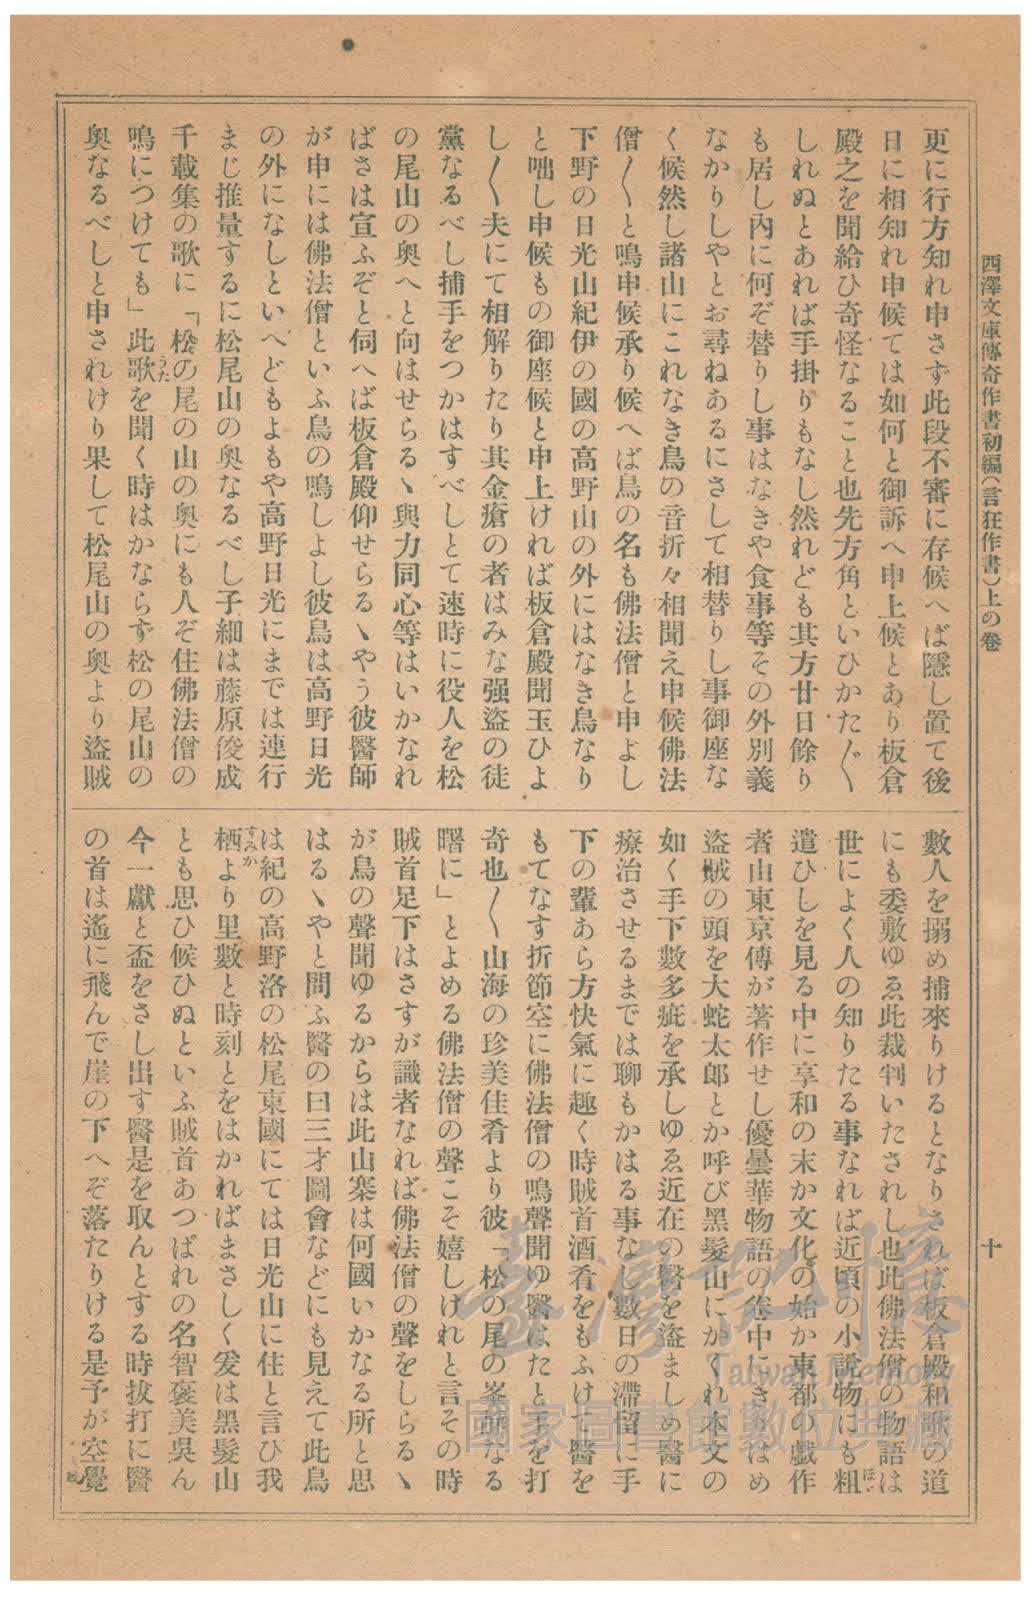 西澤文庫傳奇作書初編(言狂作書)上の卷
十
更に行方知れ申さず此段不審に存候へば隱し置て後
日に相知れ申候ては如何と御訴へ申上候とあり板倉
殿之を聞給ひ奇怪なること也先方角といひかた〲
しれぬとあれば手掛りもなし然れども其方廿日餘り
も居し內に何ぞ替りし事はなきや食事等その外別義
なかりしやとお尋ねあるにさして相替りし事御座な
く候然し諸山にこれなき鳥の音折々相聞え申候佛法
僧〱と鳴申候承り候へば鳥の名も佛法僧と申よし
下野の日光山紀伊の國の高野山の外にはなき鳥なり
と咄し申候もの御座候と申上ければ板倉殿聞玉ひよ
し〱夫にて相解りたり其金瘡の者はみな强盜の徒
黨なるべし捕手をつかはすべしとて速時に役人を松
の尾山の奥へと向はせらるゝ與力同心等はいかなれ
ばさは宣ふぞと伺へば板倉殿仰せらるゝやう彼醫師
が申には佛法僧といふ鳥の鳴しよし彼鳥は高野日光
の外になしといへどもよもや高野日光にまでは連行
まじ推量するに松尾山の奥なるべし子細は藤原俊成
千載集の歌に「松の尾の山の奥にも人ぞ住佛法僧の
鳴につけても」此歌うたを聞く時はかならず松の尾山の
奥なるべしと申されけり果して松尾山の奥より盜賊
數人を搦め捕來りけるとなりされば板倉殿和歌の道
にも委敷ゆゑ此裁判いたされし也此佛法僧の物語は
世によく人の知りたる事なれば近頃の小說物にも粗ほゞ
遣ひしを見る中に享和の末か文化の始か東都の戲作
者山東京傳が著作せし優曇華物語の卷中にきりはめ
盜賊の頭を大蛇太郎とか呼び黑髮山にかくれ本文の
如く手下數多疵を承しゆゑ近在の醫を盜ましめ醫に
療治させるまでは聊もかはる事なし數日の滯留に手
下の輩あら方快氣に趣く時賊首酒肴をもふけて醫を
もてなす折節空に佛法僧の鳴聲聞ゆ醫はたと手を打
奇也〱山海の珍美佳肴より彼「松の尾の峯靜なる
曙に」とよめる佛法僧の聲こそ嬉しけれと言その時
賊首足下はさすが識者なれば佛法僧の聲をしらるゝ
が鳥の聲聞ゆるからは此山寨は何國いかなる所と思
はるゝやと問ふ醫の曰三才圖會などにも見えて此鳥
は紀の高野洛の松尾東國にては日光山に住と言ひ我
栖すみかより里數と時刻とをはかればまさしく爰は黑髮山
とも思ひ候ひぬといふ賊首あつぱれの名智褒美吳ん
今一獻と盃をさし出す醫是を取んとする時拔打に醫
の首は遙に飛んで崖の下へぞ落たりける是予が空覺
臺灣記憶
Taiwan Memory
國家圖書館數位典藏